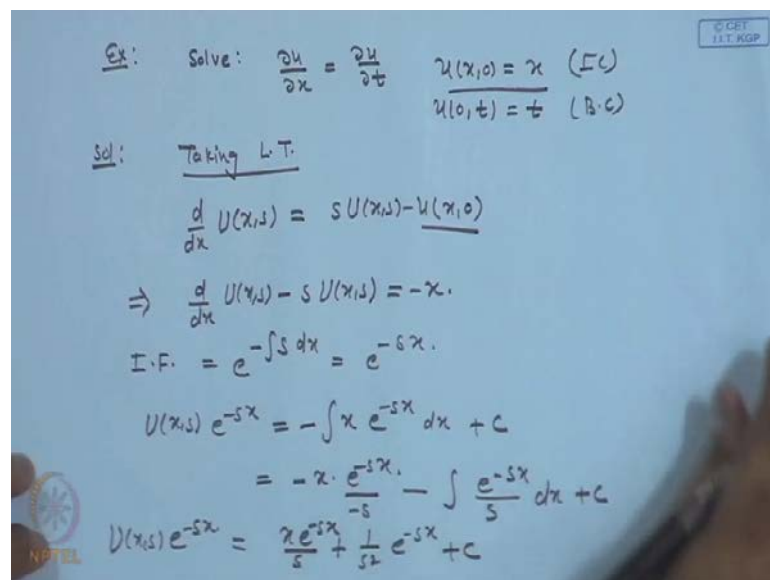 © CET
I.I.T. KGP
Ex: Solve: ∂u/∂x = ∂u/∂t u(x,0) = x (IC)
u(0,t) = t (B.C)
Sol: Taking L.T.
d/dx U(x,s) = s U(x,s) - u(x,0)
⇒ d/dx U(x,s) - s U(x,s) = -x.
I.F. = e^{-∫s dx} = e^{-sx}.
U(x,s) e^{-sx} = -∫ x e^{-sx} dx + c
= -x · e^{-sx}/-s - ∫ e^{-sx}/s dx + c
U(x,s) e^{-sx} = x e^{-sx}/s + 1/s² e^{-sx} + c
NPTEL